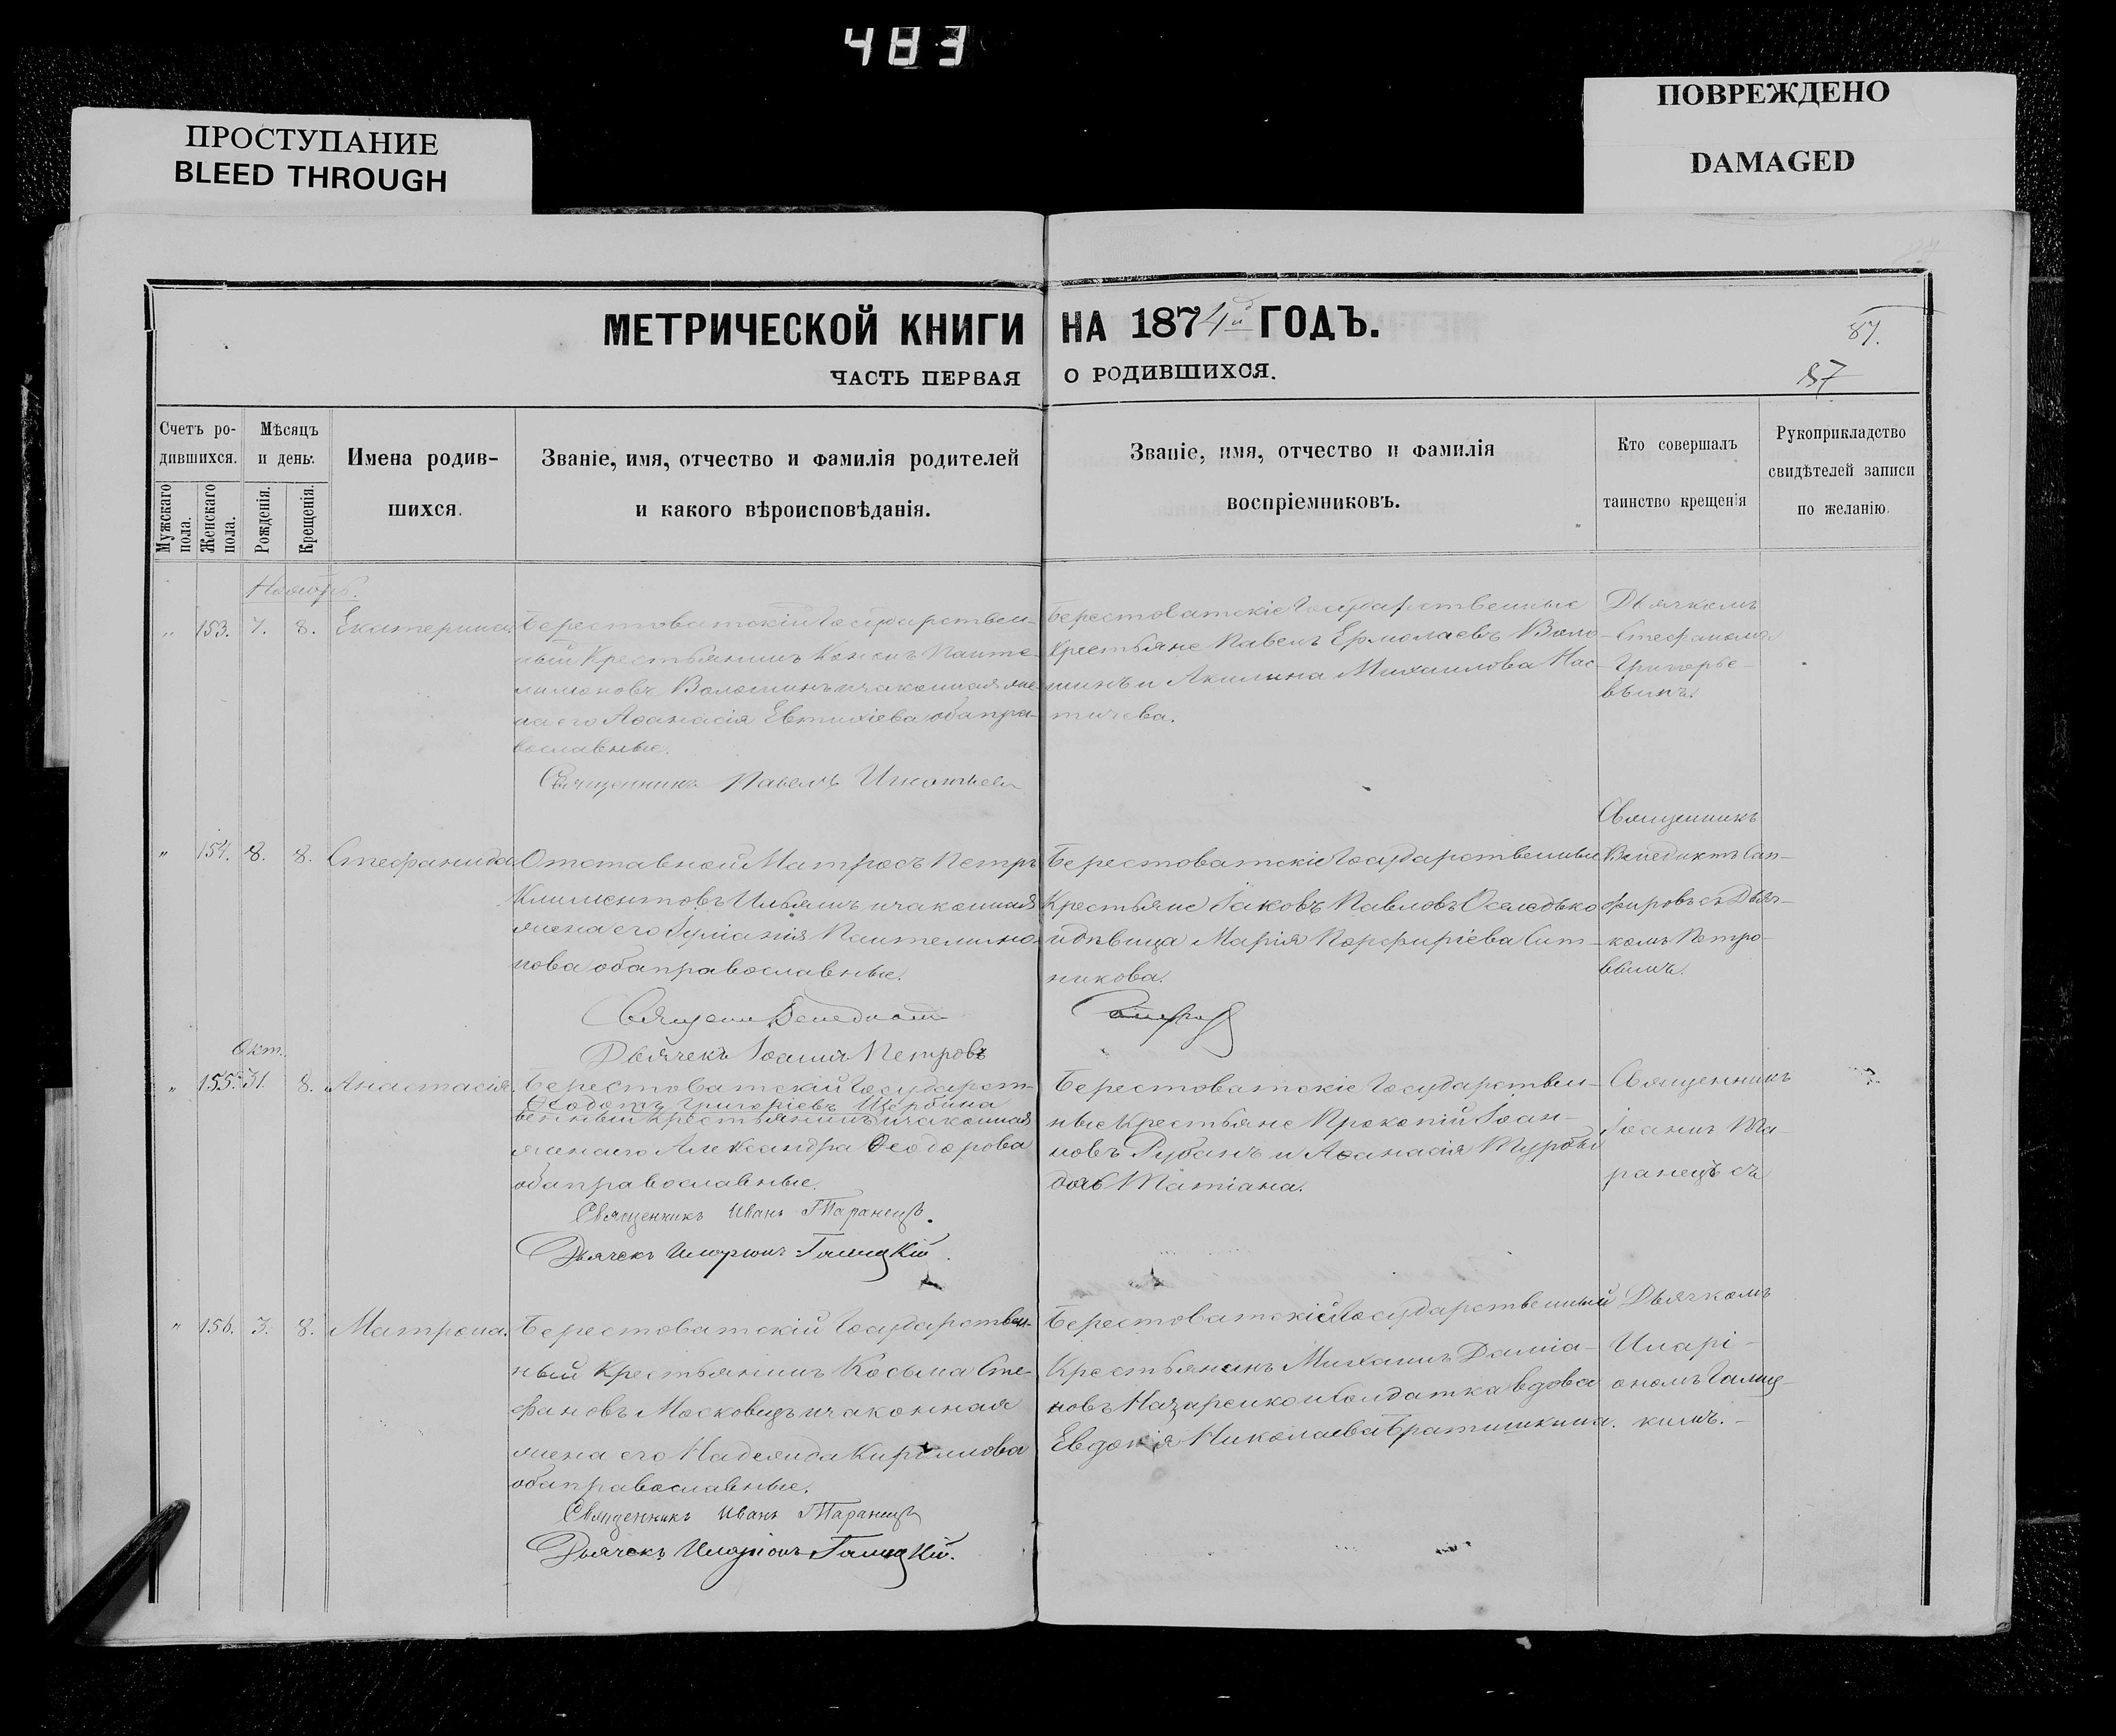 483
ПРОСТУПАНИЕ
BLEED THROUGH
ПОВРЕЖДЕНО
DAMAGED
МЕТРИЧЕСКОЙ КНИГИ НА 1874й ГОДЪ.
ЧАСТЬ ПЕРВАЯ О РОДИВШИХСЯ.
87.
87
Счетъ ро-
дившихся.
Мужскаго пола.
Женскаго пола.
Мѣсяцъ
и день.
Рожденія.
Крещенія.
Имена родив-
шихся.
Званіе, имя, отчество и фамилія родителей
и какого вѣроисповѣданія.
Званіе, имя, отчество и фамилія
воспріемниковъ.
Кто совершалъ
таинство крещенія
Рукоприкладство
свидѣтелей записи
по желанію.
Ноябрь.
„ 153. 7. 8. Екатерина.
Берестоватскій Государствен-
ный Крестьянинъ Пантe-
лимоновъ Волошинъ и законная же-
на его Аѳанасія Евтихіева оба пра-
вославные.
Священникъ Павелъ Игнатьев
Берестоватскіе Государственные
Крестьяне Павелъ Ермолаевъ Воло-
шинъ и Акилина Михаилова Нас-
тичева.
Дьячкомъ
Стефаномъ
Григорье-
вымъ.
„ 154. 8. 8. Стефанида.
Отставной Матросъ Петръ
Климентовъ Ильяшъ и законная
жена его Іуліанія Пантелимо-
нова оба православные.
Священ Венедиктъ
Дьячекъ Іоаннъ Петровъ
Берестоватскіе Государственные
Крестьяне Іаковъ Павловъ Оселедько
и дѣвица Марія Порфиріева Сит-
никова.
Священникъ
Венедиктъ Сап-
фировъ съ Дьяч-
комъ Петро-
вымъ.
Окт.
„ 155. 31. 8. Анастасія.
Берестоватскій Государст-
Ѳеодотъ Григоріевъ Щербина
венный Крестьянинъ и законная
жена его Александра Ѳеодорова
оба православные.
Священникъ Иванъ Таранецъ.
Дьячекъ Иларіонъ Галицкій.
Берестоватскіе Государствен-
ные Крестьяне Прокопій Іоан-
новъ Рубанъ и Аѳанасія
Татіана.
Священникъ
Іоаннъ Та-
ранецъ съ
„ 156. 3. 8. Матрона.
Берестоватскій Государствен-
ный Крестьянинъ Косьма Сте-
фановъ Московецъ и законная
жена его Надежда Кириллова
оба православные.
Священникъ Иванъ Таранецъ
Дьячекъ Иларіонъ Галицкій.
Берестоватскій Государственный
Крестьянинъ Михаилъ Даміа-
новъ Назаренко и Солдатка вдова
Евдокія Николаева Братишкина.
Дьячкомъ
Иларі-
ономъ Галиц-
кимъ.